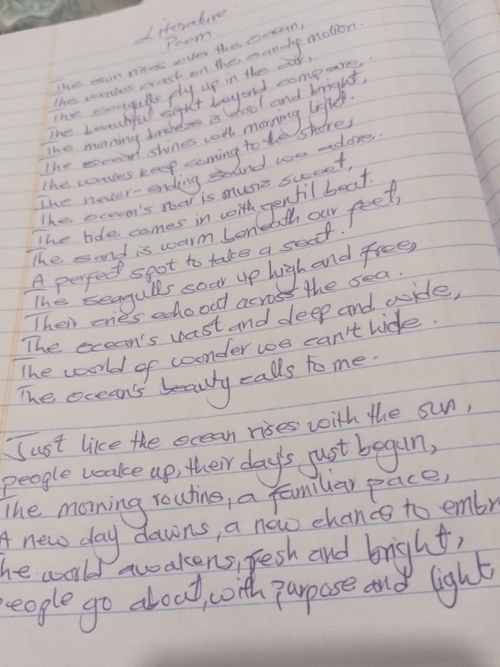 Literature
Poem
The sun rises over the ocean,
The waves crash on the sandy motion.
The seagulls fly up in the air,
The beautiful sight beyond compare,
The morning breeze is cool and bright,
The ocean shines with morning light.
The waves keep coming to the shore,
The never-ending sound we adore.
The ocean's roar is music sweet,
The tide comes in with gentil beat.
The sand is warm beneath our feet,
A perfect spot to take a seat.
The seagulls soar up high and free,
Their cries echo out across the sea.
The ocean's vast and deep and wide,
The world of wonder we can't hide.
The ocean's beauty calls to me.
Just like the ocean rises with the sun,
people wake up, their day's just begun,
The morning routine, a familiar pace,
A new day dawns, a new chance to embr
The world awakens, fresh and bright,
People go about, with purpose and light